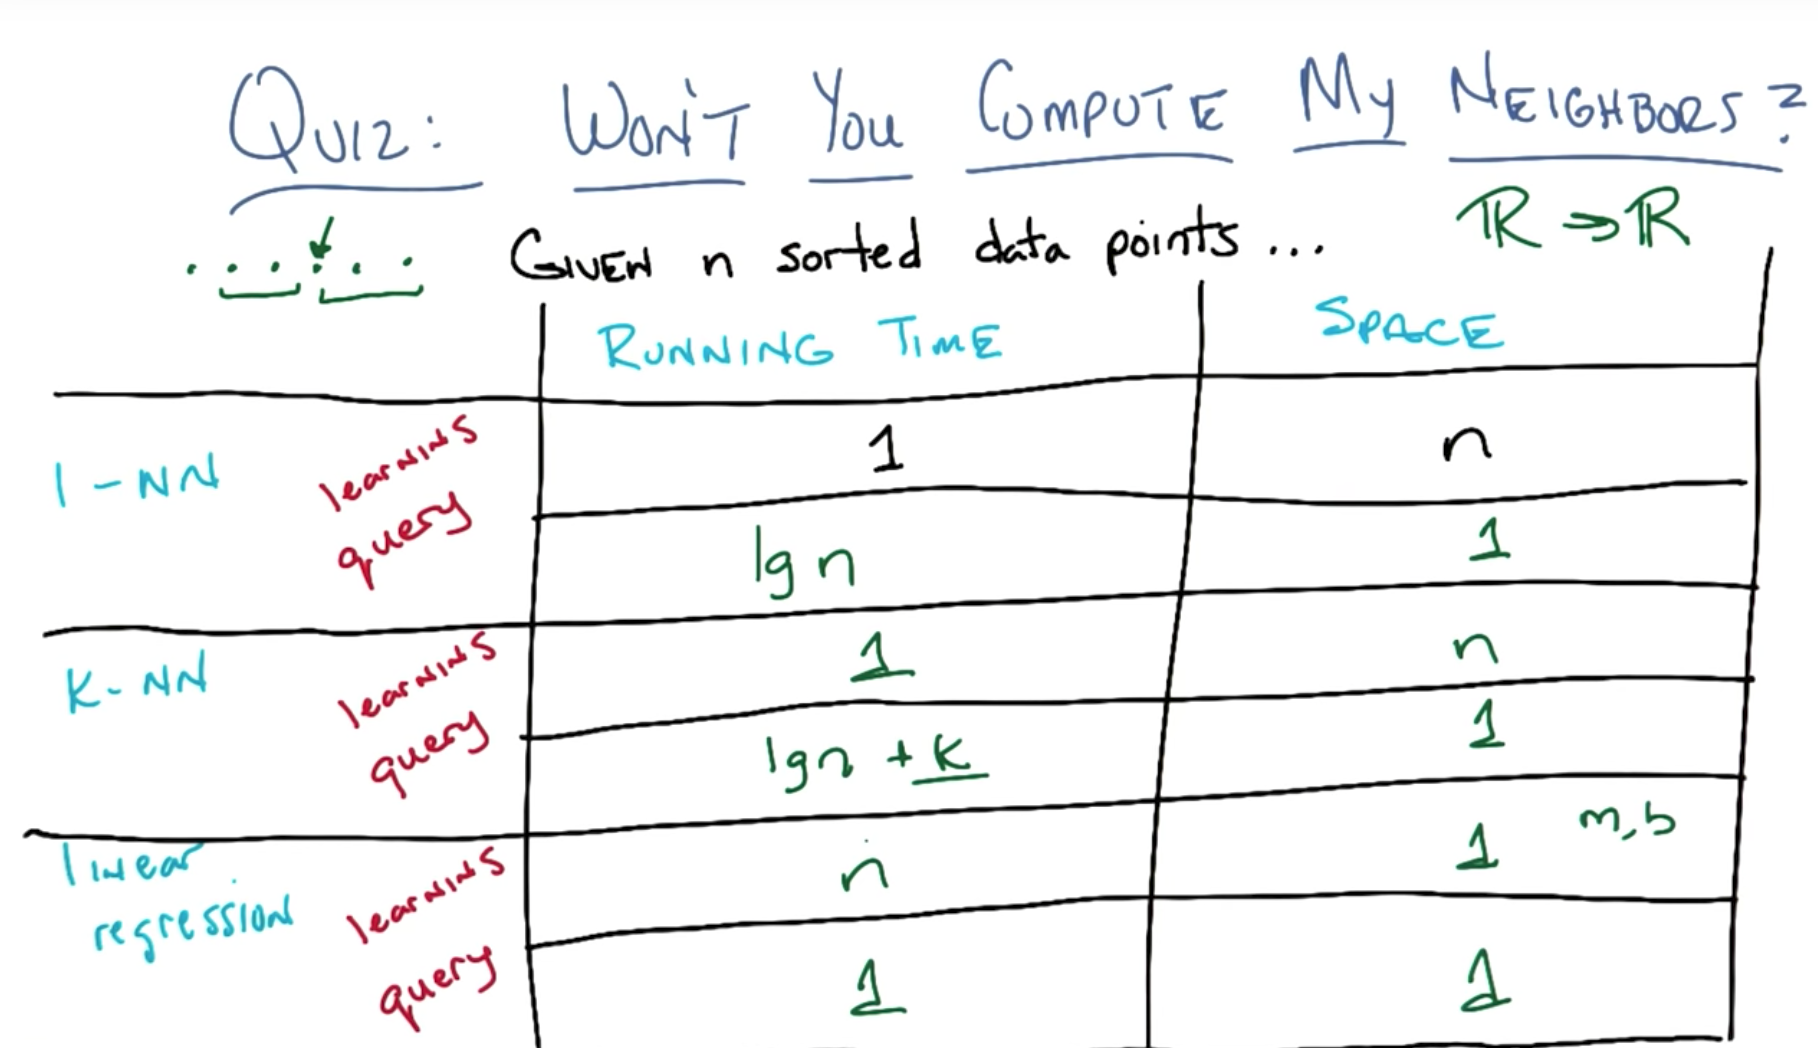 QUIZ: WON'T YOU COMPUTE MY NEIGHBORS?
GIVEN n sorted data points... ℝ → ℝ
RUNNING TIME SPACE
1-NN learning 1 n
query lg n 1
K-NN learning 1 n
query lg n + K 1
linear regression learning n 1 m,b
query 1 1